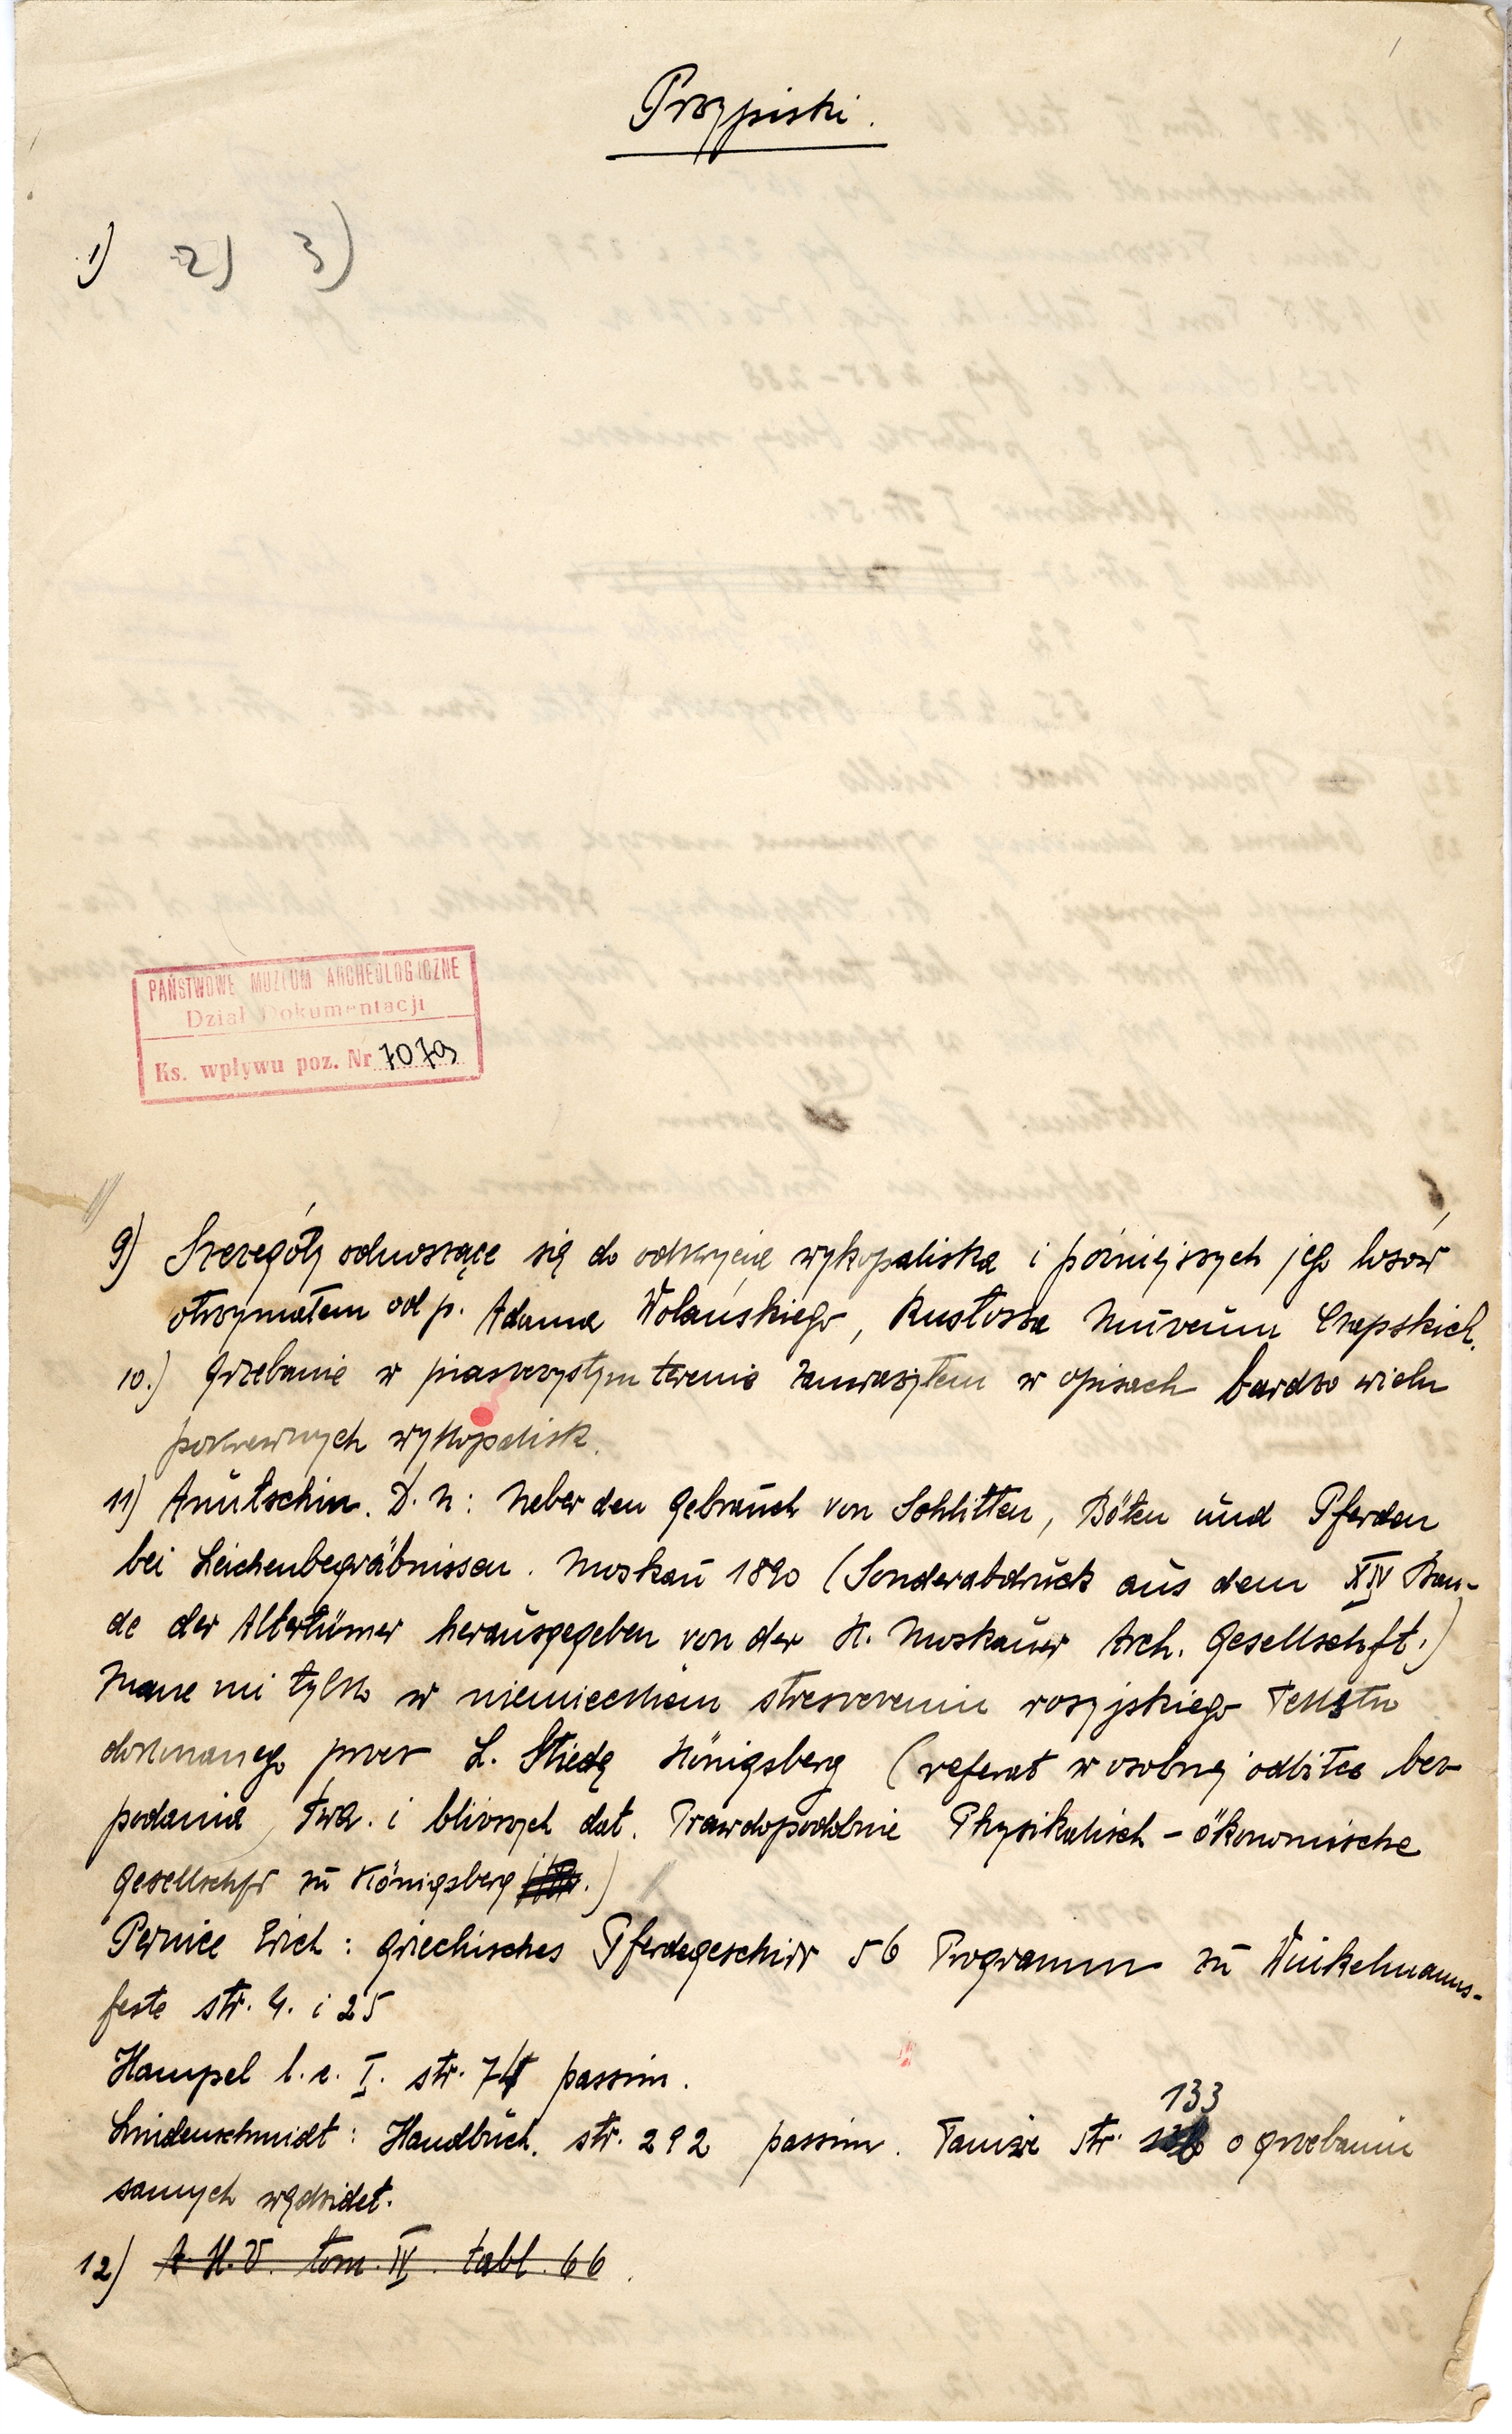 Przypiski.
1) 2) 3)
PAŃSTWOWE MUZEUM ARCHEOLOGICZNE
Dział Dokumentacji
Ks. wpływu poz. Nr 7079
9) Szczegóły odnoszące się do odkrycia wykopaliska i późniejszych jego losów
otrzymałem od p. Adama Wolańskiego, Kustosza Muzeum Czapskich.
10.) Grzebanie w piaszczystym terenie zauważyłem w opisach bardzo wielu
pokrewnych wykopalisk.
11) Anutschin. D. N: Ueber den Gebrauch von Schlitten, Böten und Pferden
bei Leichenbegräbnissen. Moskau 1890 (Sonderabdruck aus dem XIV Ban-
de der Altertümer herausgegeben von der K. Moskauer Arch. Gesellschft.)
Znane mi tylko w niemieckiem streszczeniu rosyjskiego tekstu
dokonanego przez L. Stiedę Königsberg (referat w osobnej odbitce bez
podania i bliższych dat. Prawdopodobnie Physikalisch-ökonomische
Gesellschft zu Königsberg.)
Pernice Erich: Griechisches Pferdegeschirr 56 Programm zu Winkelmanns-
feste str. 4. i 25
Hampel l.c. I. str. 74 passim.
133
Lindenschmidt: Handbuch. str. 292 passim. Tamże str. o grzebaniu
samych wędzideł.
12) A. H. V. tom. IV. tabl. 66.